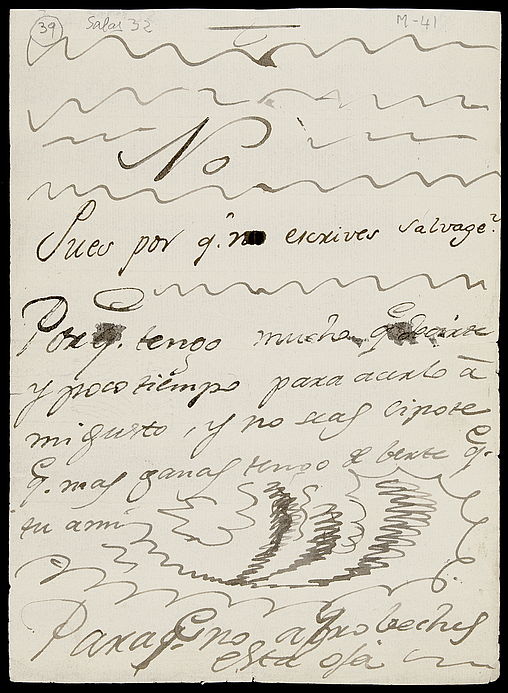 39 Salas 32 M-41
No
Pues por q.e no escrives salvage?
Porq.e tengo mucho q.e decirte
y poco tiempo para acerlo á
mi gusto, y no seas cipote
q.e mas ganas tengo de berte q.e
tu ami
Para q.e no aprobeches
esta oja